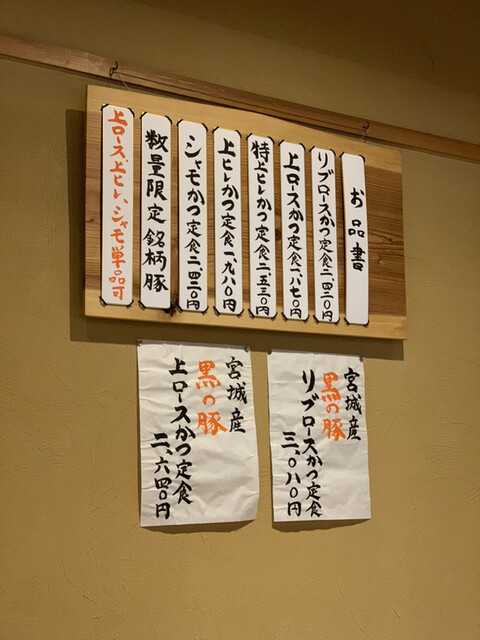 お品書
リブロースかつ定食二、四二〇円
上ロースかつ定食一、八七〇円
特上ヒレかつ定食二、五三〇円
上ヒレかつ定食一、九八〇円
シャモかつ定食二、四二〇円
数量限定銘柄豚
上ロース、上ヒレ、シャモ単品可
宮城産
黒の豚
リブロースかつ定食
三、〇八〇円
宮城産
黒の豚
上ロースかつ定食
二、六四〇円